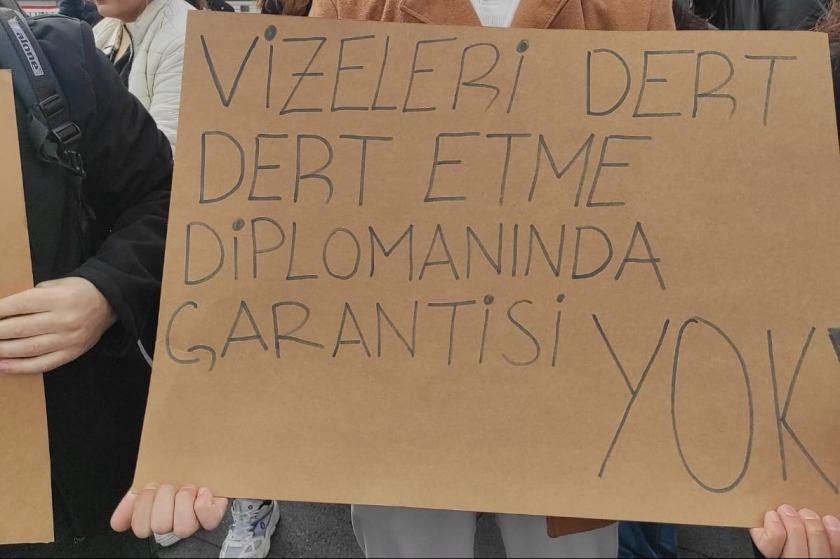 VİZELERİ DERT
DERT ETME
DİPLOMANINDA
GARANTİSİ YOK